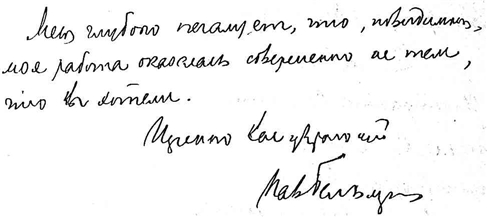 Меня глубоко печалует, что, повидимому,
моя работа оказалась совершенно не тем,
что Вы хотели.
Искренно Вас уважающий